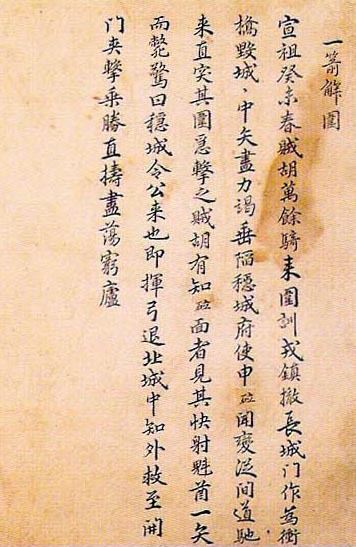 一箭解圍
宣祖癸未春賊胡萬餘騎来圍訓戎鎮撤長城門作為衝
橋毀城、中矢盡力竭垂陷穩城府使申砬聞變從間道馳
来直突其圍急擊之賊胡有知砬面者見其快射魁酋一矢
而斃驚曰穩城令公来也即揮弓退北城中知外救至開
門夾擊乘勝直擣盡蕩窮廬